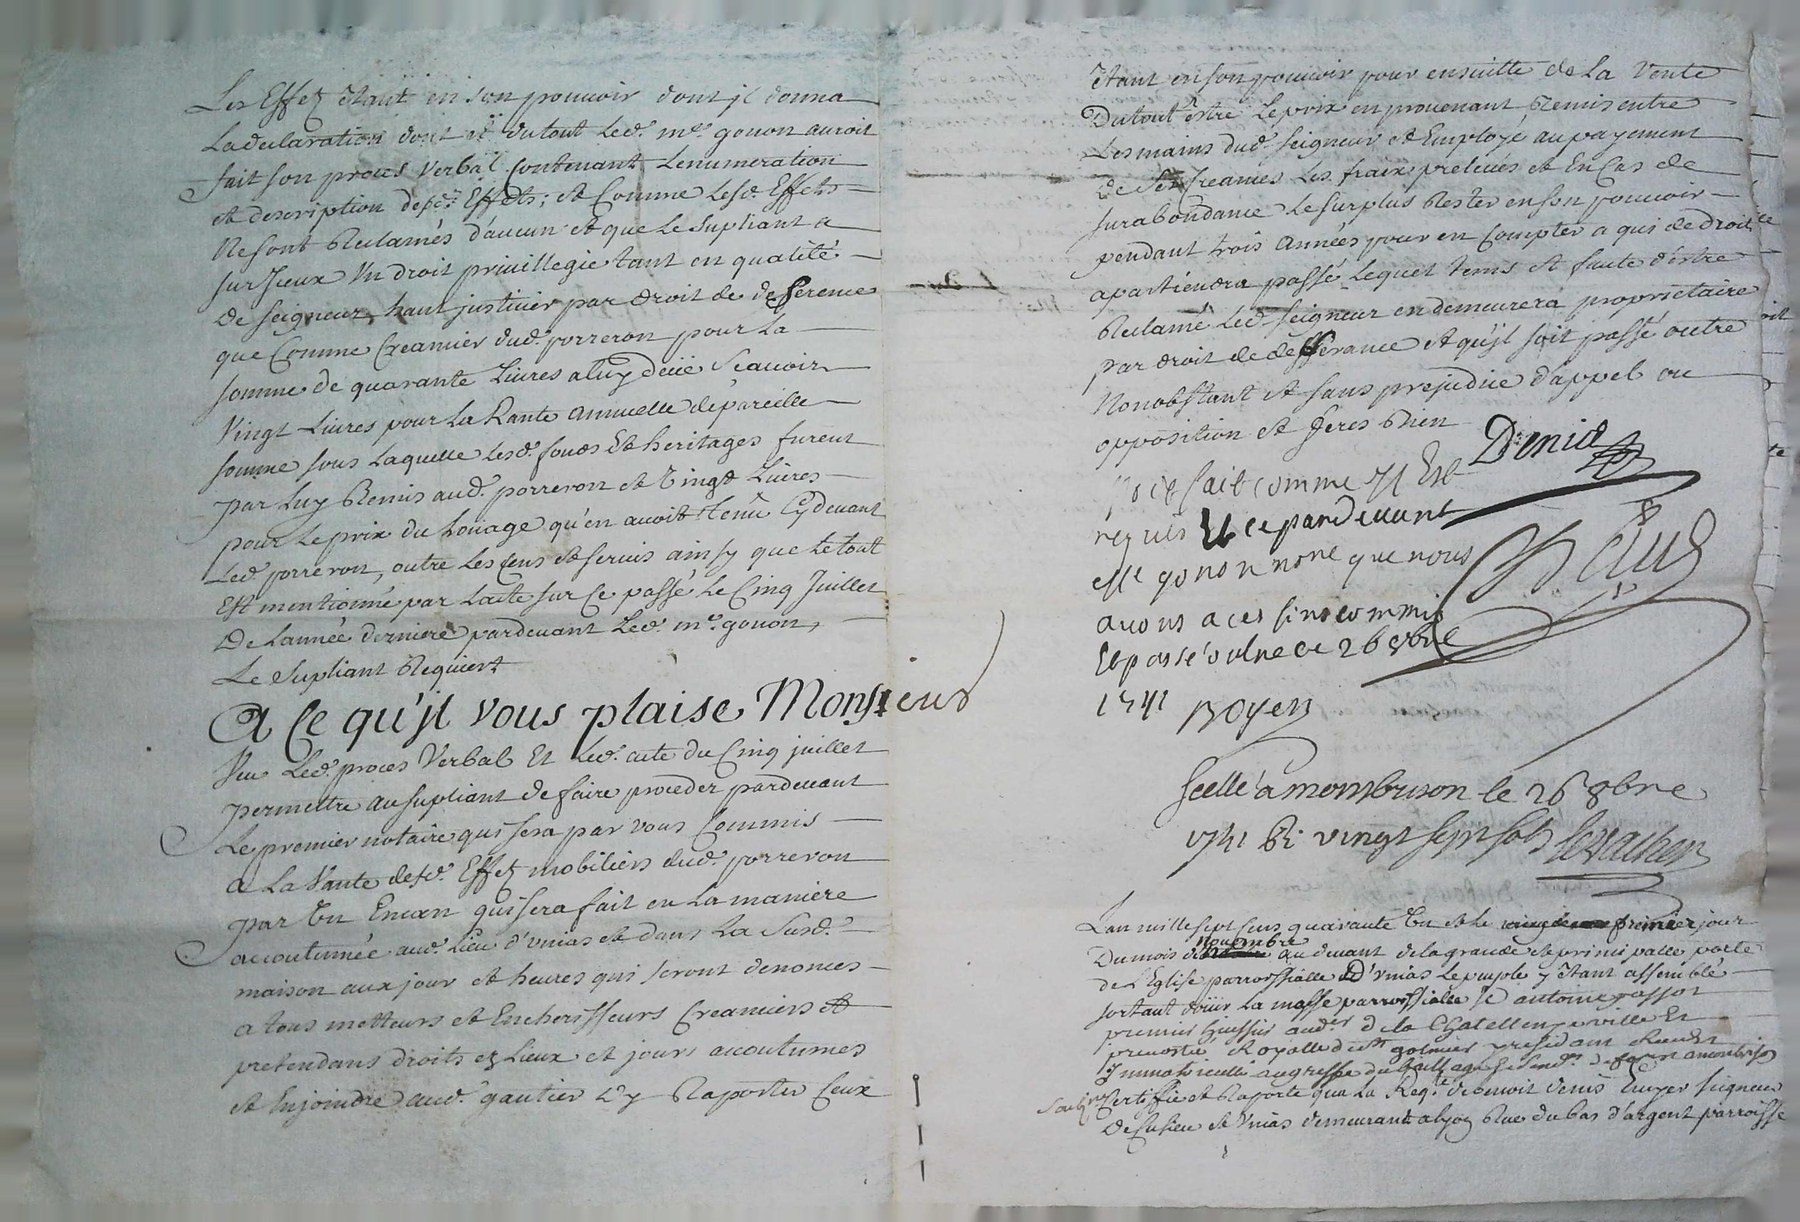 Les Effez étant en son pouuoir dont jl donna
La declaration dont et du tout Led. me. gonon auroit
fait son proces Verbal Contenant Lenumeration
et description desd. Effets; et Comme Lesd. Effets
Ne sont Reclamés d'aucun et que Le supliant a
sur Jceux Vn droit priuillegié tant en qualité
de seigneur haut justicier par droit de desherence
que Comme Creancier dud. porreron pour La
somme de quarante Liures a luy deüe Scauoir
Vingt Liures pour La Rante annuelle de pareille
somme sous Laquelle Lesd. fonds Et heritages furent
par Luy Remis aud. porreron et Vingt Liures
pour Le prix du Loüage qu'en auoit tenu Cydeuant
Led. porreron, outre Les Cens et seruis ainsy que Le tout
Est mentionné par Lacte sur Ce passé Le Cinq Juillet
De Lannée derniere pardeuant Led. me. gonon,
Le supliant Requiert
A Ce qu'jl vous plaise Monsieur
Veu Led. proces Verbal Et Led. acte du Cinq juillet
permettre au supliant de faire proceder pardeuant
Le premier notaire qui sera par vous Commis
a La Vante desd. Effez mobiliers dud. porreron
par Vn Encan qui sera fait en La maniere
accoutumée aud. Lieu d'Vnias et dans La Susd.
maison aux jour et heures qui seront denoncés
a tous metteurs et Encherisseurs Creanciers et
pretendans droits ez Lieux et jours accoutumés
et Enjoindre aud. gautier d'y Raporter Ceux
étant en son pouuoir pour ensuitte de La Vente
Du tout être Le prix en prouenant Remis entre
Les mains dud. seigneur et Employé au payement
de Ses Creances Les fraix preleués et En Cas de
surabondance Le surplus Rester en son pouuoir
pendant trois années pour en Compter a qui de droit
apartiendra passé Lequel tems et faute d'estre
Reclamé Led. seigneur en demeurera proprietaire
par droit de desherance et qu'jl soit passé outre
Nonobstant et sans prejudice d'appel ou
opposition et feres Bien
Denis
soit fait comme Jl Est
requis Et ce pardeuant
me gonon nore que nous
auons a ces fins commis
Et passé oultre ce 26 8bre
1741 Boyer
Scellé a Montbrison le 26 8bre
1741 R. vingt sept sols Levacher
Lan mille sept Cens quarante Vn et Le premier jour
Du mois de nouembre au deuant de la grande et principalle porte
de L'Eglise parroissialle d'Vnias Le peuple y étant assemblé
sortant d'oüir La messe parroissialle Je antoine
premier huissier aud. de la Chatellenye ville Et
preuosté Royalle de St galmier y residant Receu Et
Jmmatriculé au greffe du Baillage Et Sened. de forest a montbrison
Soubne Certiffie et Raporte qu'a La Reqte. de benoit denis Ecuyer seigneur
de Cuzieu et Vnias demeurant a Lyon Rue du bas d'argent parroisse